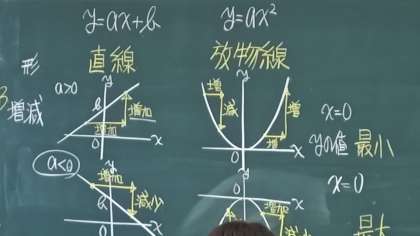 y=ax+b
y=ax²
形
直線
放物線
増減
a>0
y
b
増加
増加
O
x
y
増
減
増
増
O
x
x=0
yの値 最小
a<0
増加
y
b
減少
O
x
y
O
x
増加
減
x=0
最大